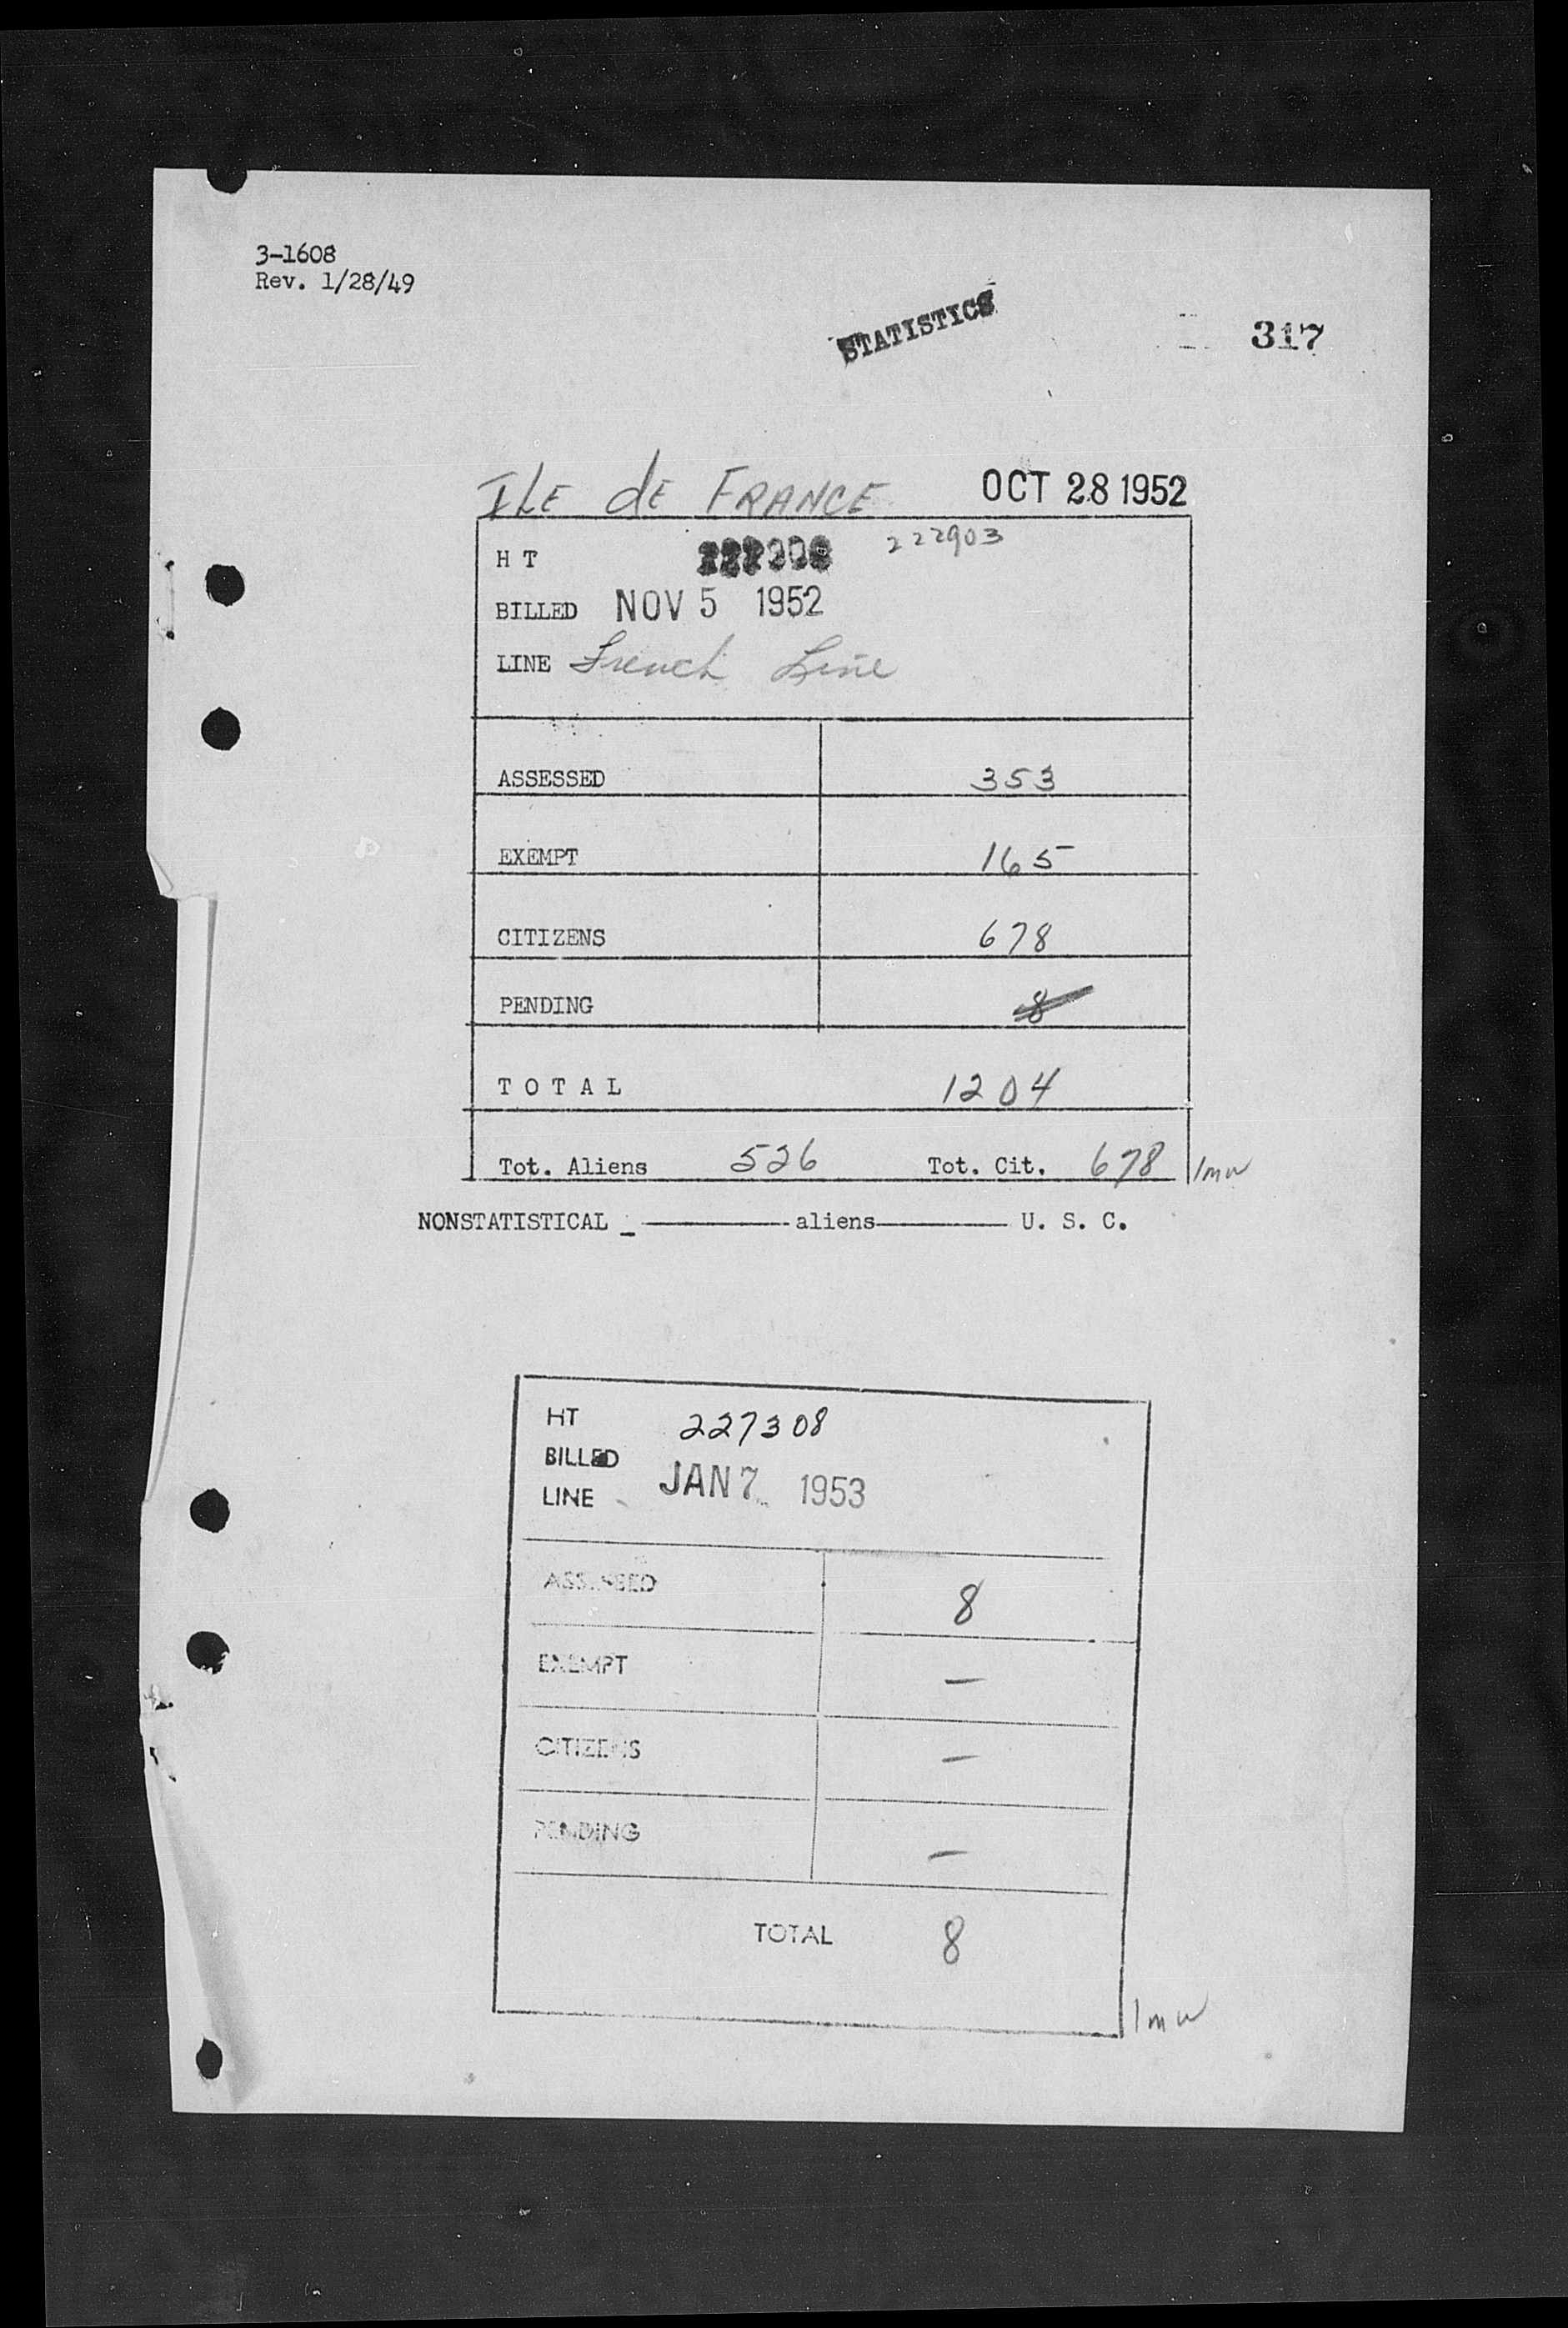 3-1608
Rev. 1/28/49
STATISTICS
317
ILE de FRANCE OCT 28 1952
H T 222903
BILLED NOV 5 1952
LINE French Line
ASSESSED 353
EXEMPT 165
CITIZENS 678
PENDING 8
T O T A L 1204
Tot. Aliens 526 Tot. Cit. 678 lmw
NONSTATISTICAL _ aliens U. S. C.
HT 227308
BILLED
LINE JAN 7 1953
ASSESSED 8
EXEMPT —
CITIZENS —
PENDING —
TOTAL 8
lmw